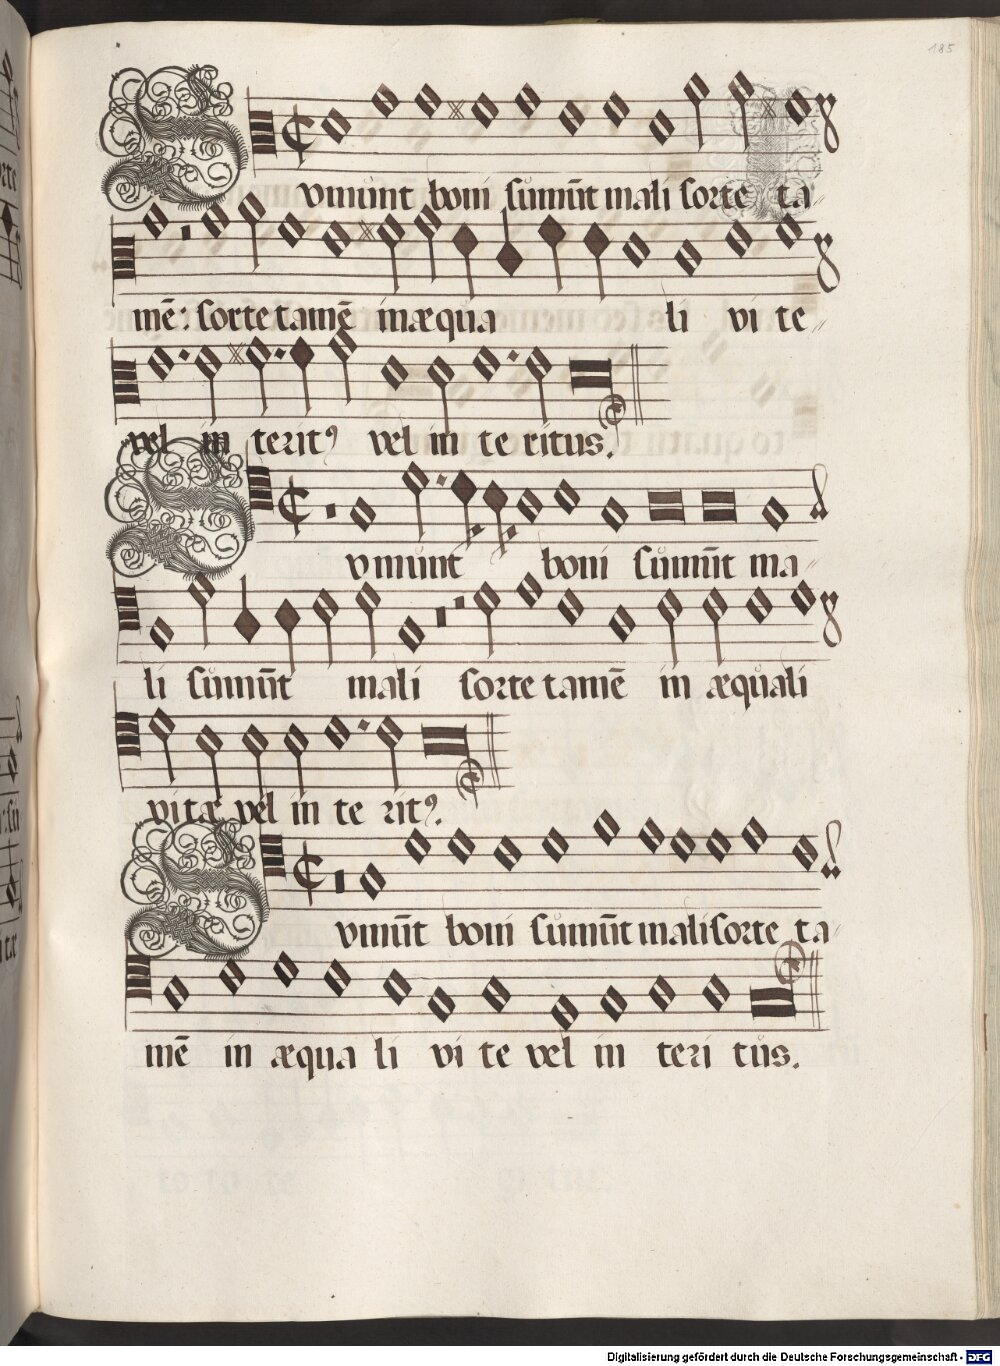 185
Sumunt boni sumūt mali sorte ta
mē: sorte tamē inæqua li vi te
vel in terit9 vel in te ritus.
Sumunt boni sumūt ma
li sumūt mali sorte tamē in æquali
vitæ vel in te rit9.
Sumūt boni sumūt mali sorte ta
mē in æqua li vi te vel in teri tus.
Digitalisierung gefördert durch die Deutsche Forschungsgemeinschaft - DFG